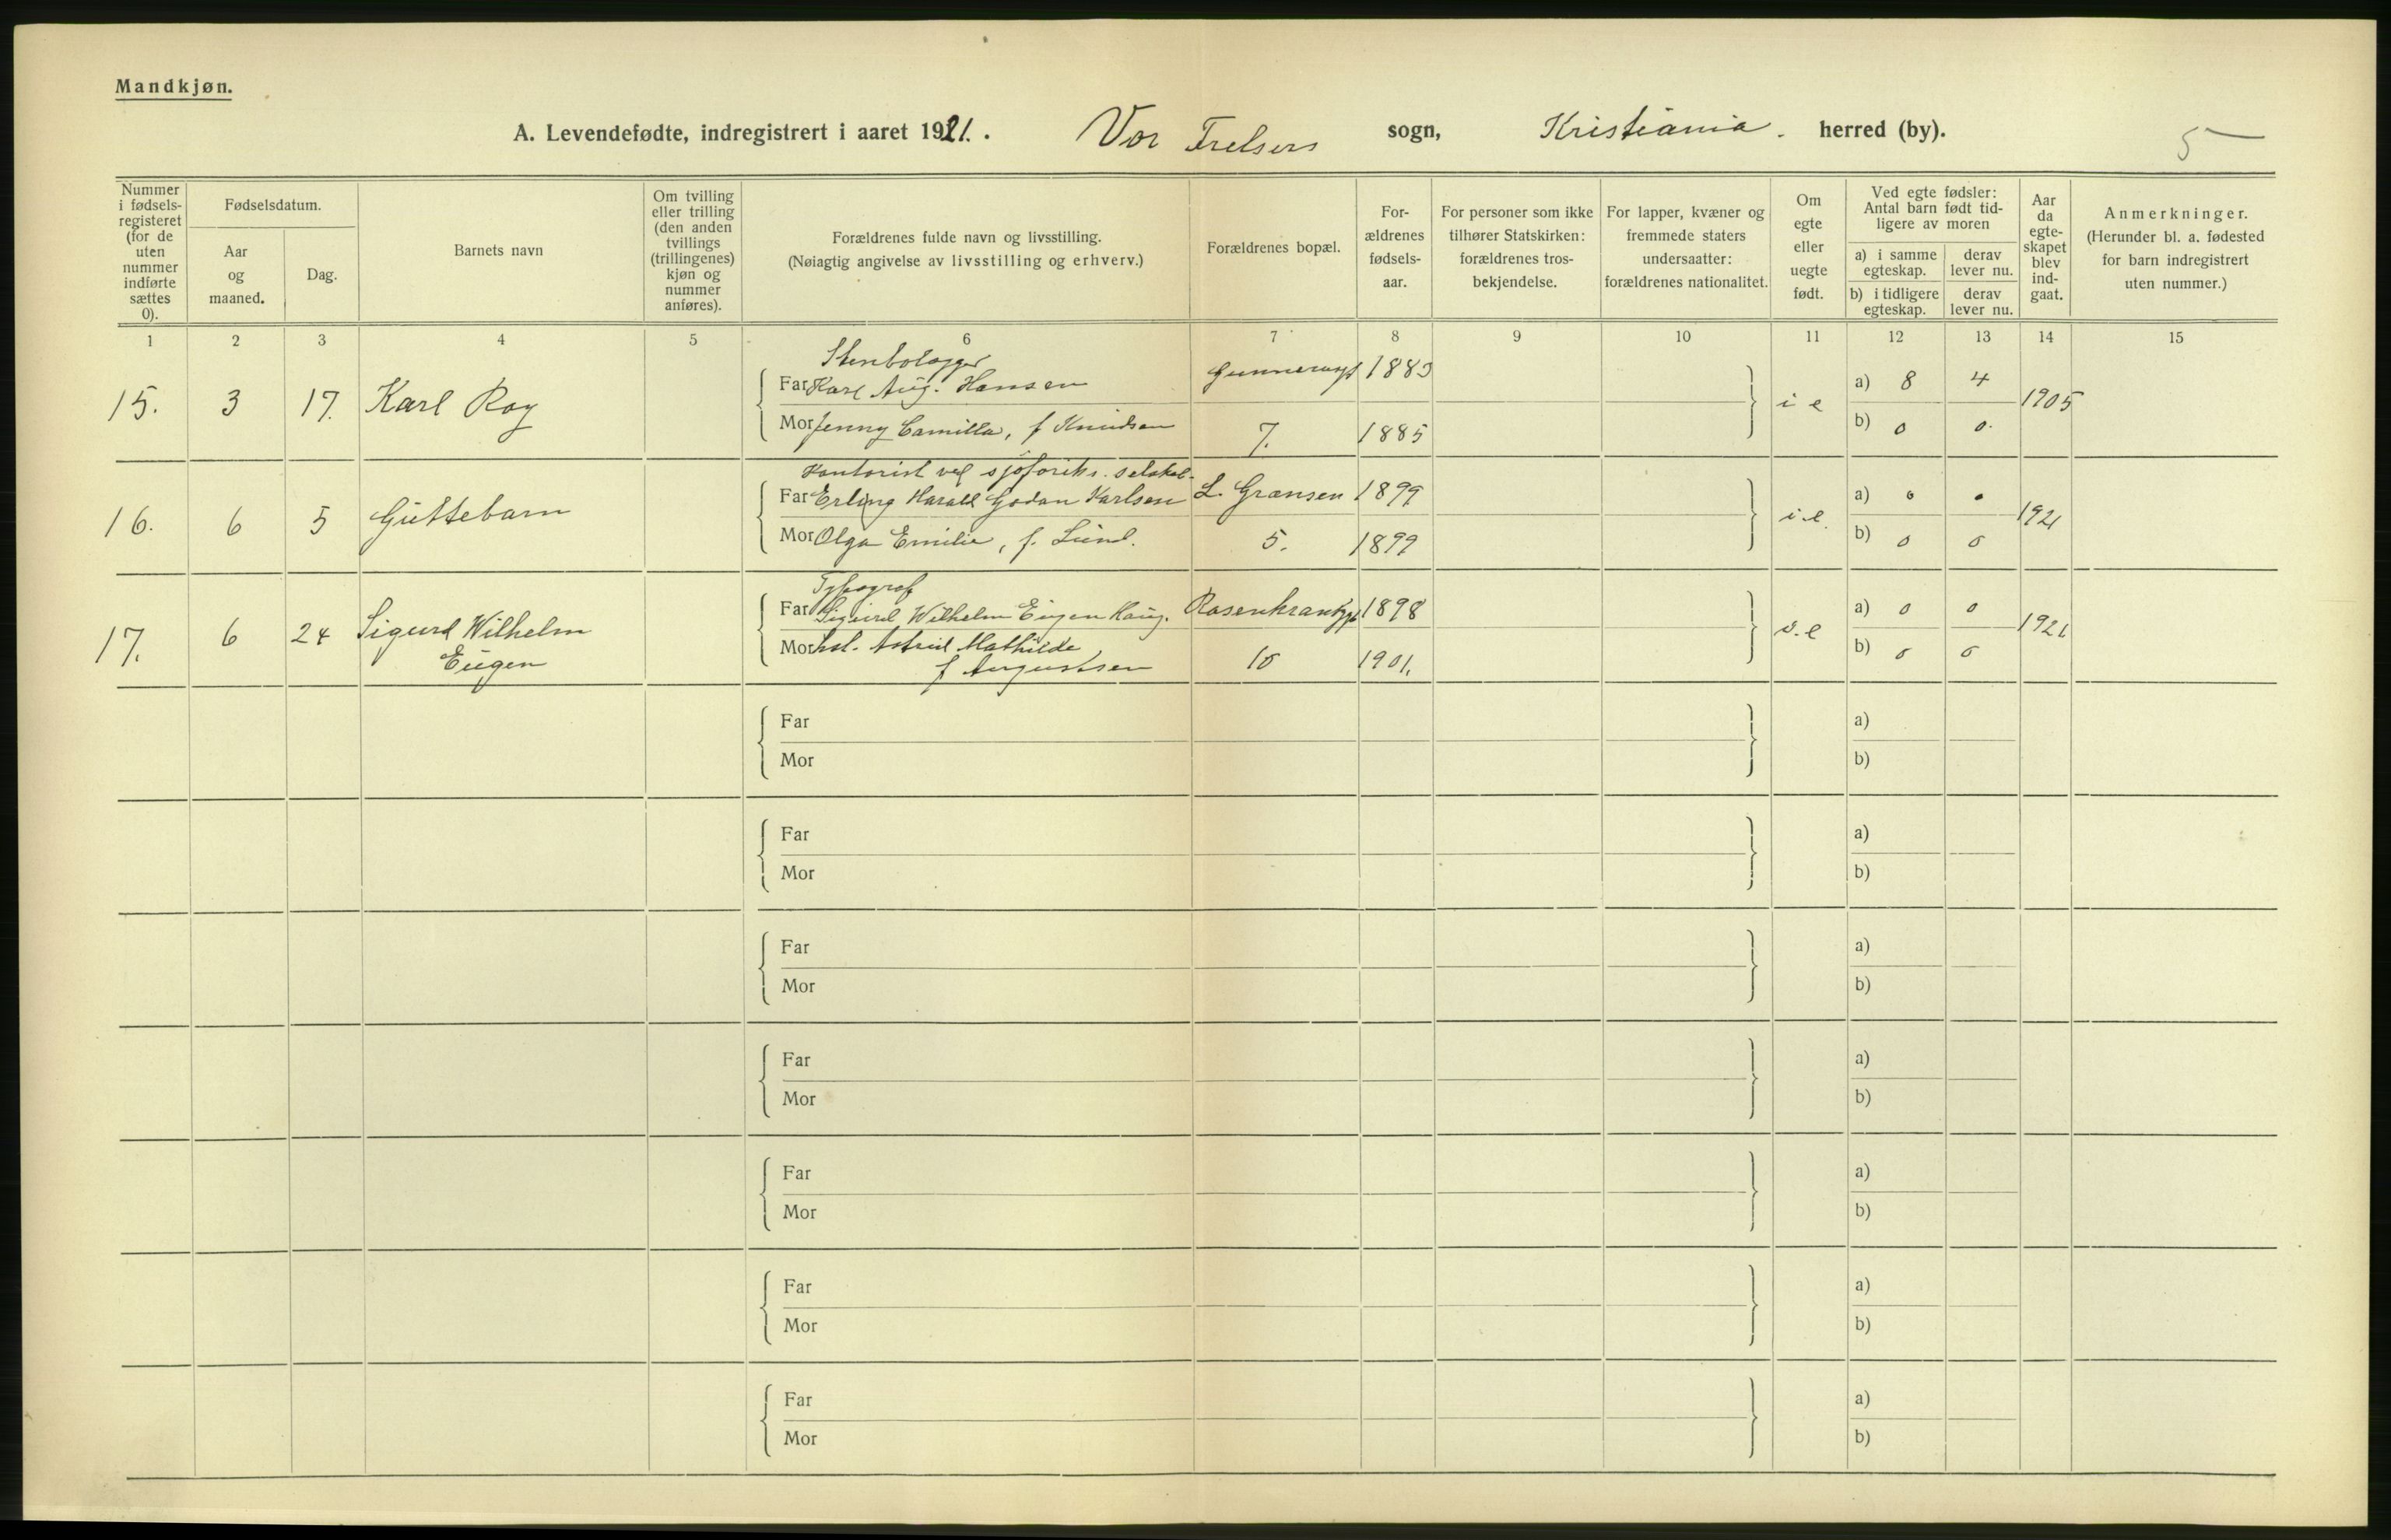 Mandkjøn.
A. Levendefødte, indregistrert i aaret 1921. Vor Frelsers sogn, Kristiania. herred (by). 5
Nummer i fødsels-registeret (for de uten nummer indførte sættes 0).
Fødselsdatum.
Aar og maaned.
Dag.
Barnets navn
Om tvilling eller trilling (den anden tvillings (trillingenes) kjøn og nummer anføres).
Forældrenes fulde navn og livsstilling.
(Nøiagtig angivelse av livsstilling og erhverv.)
Forældrenes bopæl.
For-ældrenes fødsels-aar.
For personer som ikke tilhører Statskirken: forældrenes tros-bekjendelse.
For lapper, kvæner og fremmede staters undersaatter: forældrenes nationalitet.
Om egte eller uegte født.
Ved egte fødsler: Antal barn født tid-ligere av moren
a) i samme egteskap.
derav lever nu.
b) i tidligere egteskap.
derav lever nu.
Aar da egte-skapet blev ind-gaat.
Anmerkninger.
(Herunder bl. a. fødested for barn indregistrert uten nummer.)
1 2 3 4 5 6 7 8 9 10 11 12 13 14 15
Stenhlogger
15. 3 17. Karl Roy Far Karl Aug. Hansen 1883 i e a) 8 4 1905
Mor Jenny Camilla, f Knudsen 7. 1885 b) 0 0.
Kontorist ved sjøforsikr. selskab.
16. 6 5 Guttebarn Far Erling Harald Karlsen L. Grænsen 1899 i e. a) 0 0 1921
Mor Olga Emilie, f. Lund. 5. 1899 b) 0 0
Typograf
17. 6 24 Sigurd Wilhelm Far Sigurd Wilhelm Eugen Haug. Rosenkrantzgt 1898 a) 0 0 1921
Eugen Mor Astrid Mathilde
f Augustsen 10 1901. b) 0 0
Far a)
Mor b)
Far a)
Mor b)
Far a)
Mor b)
Far a)
Mor b)
Far a)
Mor b)
Far a)
Mor b)
Far a)
Mor b)